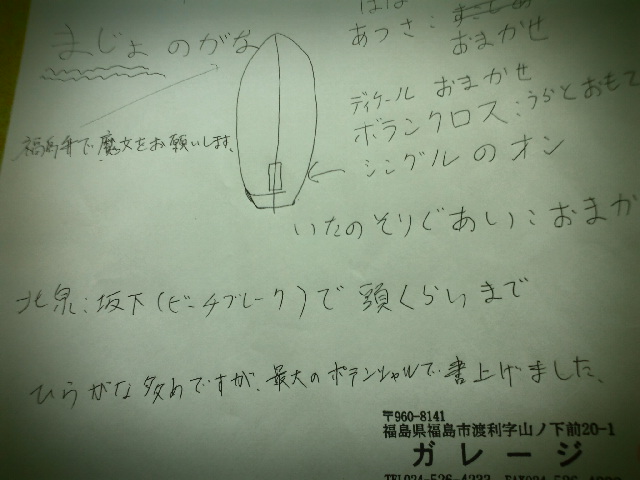 はば
あつさ：
おまかせ
まじょのがな
ディケール おまかせ
ボランクロス：うらとおもて
福島弁で魔文をお願いします。
シングルのオン
いたのそりぐあい：おまか
北泉：坂下（ビーチブレーク）で 頭くらいまで
ひらがな多めですが、最大のポテンシャルで書上げました、
〒960-8141
福島県福島市渡利字山ノ下前20-1
ガレージ
TEL024-526-4233 FAX024-